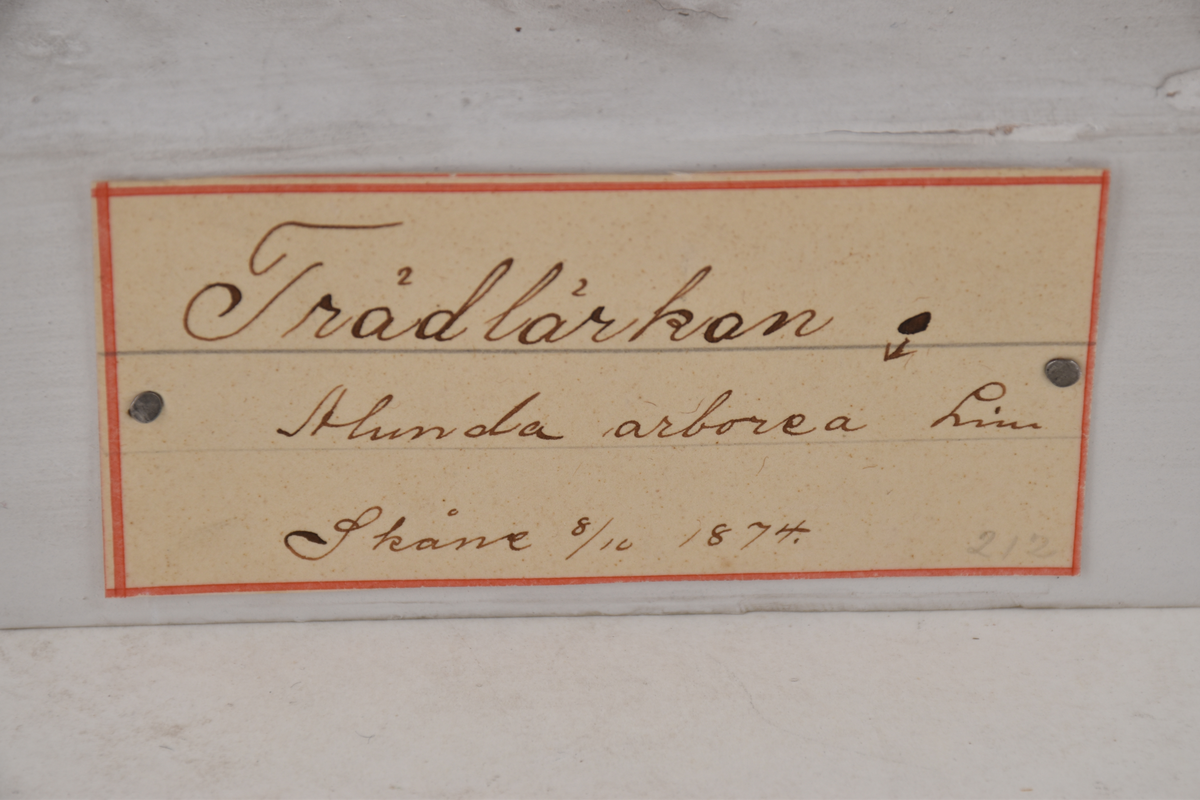 Trädlärkan ♂
Alunda arborea Lin
Skåne 8/10 1874.
212